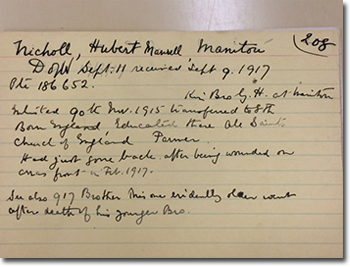 Nicholl, Hubert Mansell Manitou 208
D of W Sept. 11 received Sept 9. 1917
Pte 186652.
Kin Bro G. H. at Manitou
Enlisted 90th Nov. 1915 transferred to 8th
Born England, Educated there All Saints
Church of England Farmer.
Had just gone back after being wounded on
arras front in Feb. 1917.
See also 917 Brother this one evidently older went
after death of his younger Bro.